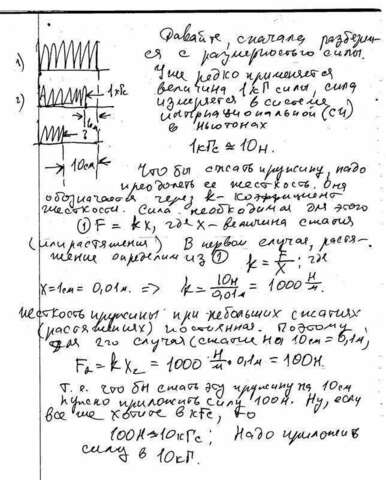 Давайте, сначала разберем-
ся с размерностью силы.
1)
Уже редко применяется
величина 1 кГ силы, сила
2)
1кГс
измеряется в системе
1см
интернациональной (СИ)
?
в ньютонах
10см
1кГс ≈ 10н.
Что бы сжать пружину, надо
преодолеть ее жесткость. Она
обозначается через k - коэффициент
жесткости. Сила необходимая для этого
① F = kx, где x - величина сжатия
(или растяжения) В первом случае, растя-
жение определим из ① k = F/x; где
x = 1см = 0,01м. => k = 10н/0,01м = 1000 н/м.
жесткость пружины при небольших сжатиях
(растяжениях) постоянная. Поэтому
для его случая (сжатие на 10см = 0,1м,
F₂ = kx₂ = 1000 н/м · 0,1м = 100н.
т.е. что бы сжать эту пружину на 10см
нужно приложить силу 100н. Ну, если
все же хотите в кГс, то
100н ≈ 10кГс; Надо приложить
силу в 10кГ.